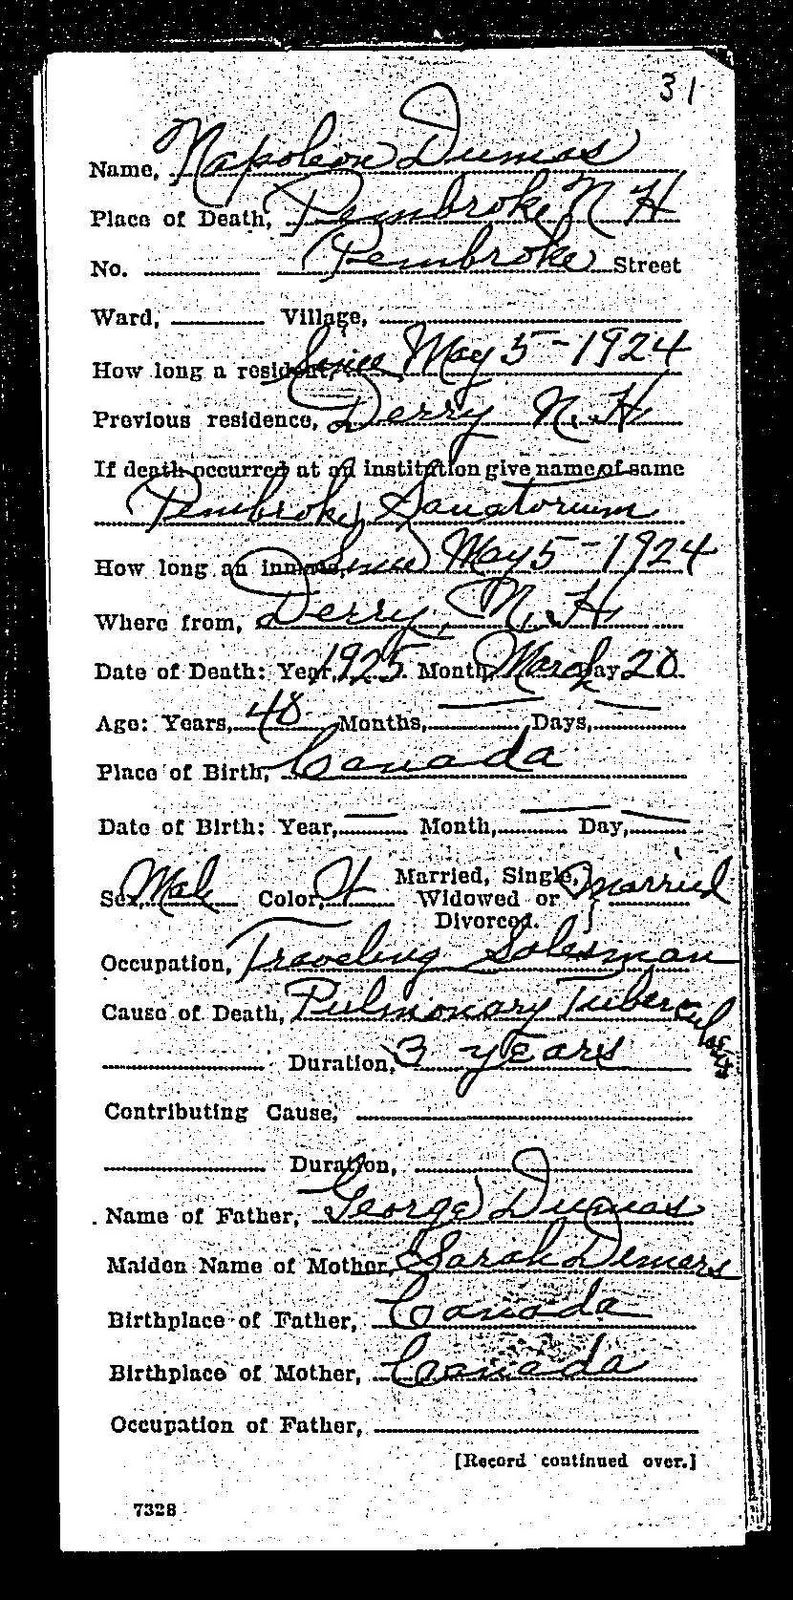 31
Name, Napoleon Dumas
Place of Death, Pembroke N H
No. Pembroke Street
Ward, Village,
How long a resident, Since May 5-1924
Previous residence, Derry N.H
If death occurred at an institution give name of same
Pembroke Sanatorium
How long an inmate, Since May 5-1924
Where from, Derry, N.H
Date of Death: Year, 1925 Month, March Day 20
Age: Years, 48 Months, Days,
Place of Birth, Canada
Date of Birth: Year, Month, Day,
Sex, Male Color, W Married, Single, Widowed or Divorced. } Married
Occupation, Traveling Salesman
Cause of Death, Pulmonary Tuberculosis
Duration, 3 years
Contributing Cause,
Duration,
Name of Father, George Dumas
Maiden Name of Mother, Sarah Demers
Birthplace of Father, Canada
Birthplace of Mother, Canada
Occupation of Father,
[Record continued over.]
7328